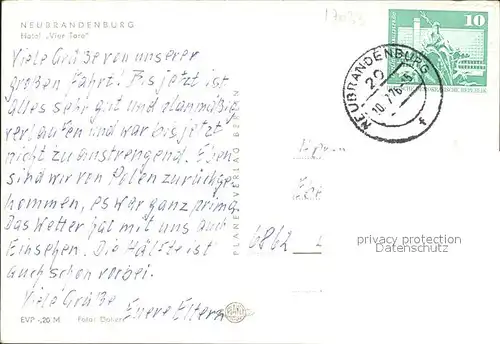 NEUBRANDENBURG
Hotel „Vier Tore"
17033
Viele Grüße von unserer
großen Fahrt! Bis jetzt ist
alles sehr gut und planmäßig
verlaufen und war bis jetzt
nicht zu anstrengend. Eben
sind wir von Polen zurückge-
kommen, es war ganz prima.
Das Wetter hat mit uns auch
Einsehen. Die Hälfte ist
auch schon vorbei.
Viele Grüße
Euere Eltern
EVP -,20 M Foto:
PLANET-VERLAG BERLIN
10
NEUBRANDENBURG
20
10.7.76
f
6862
privacy protection
DANUSER.COM